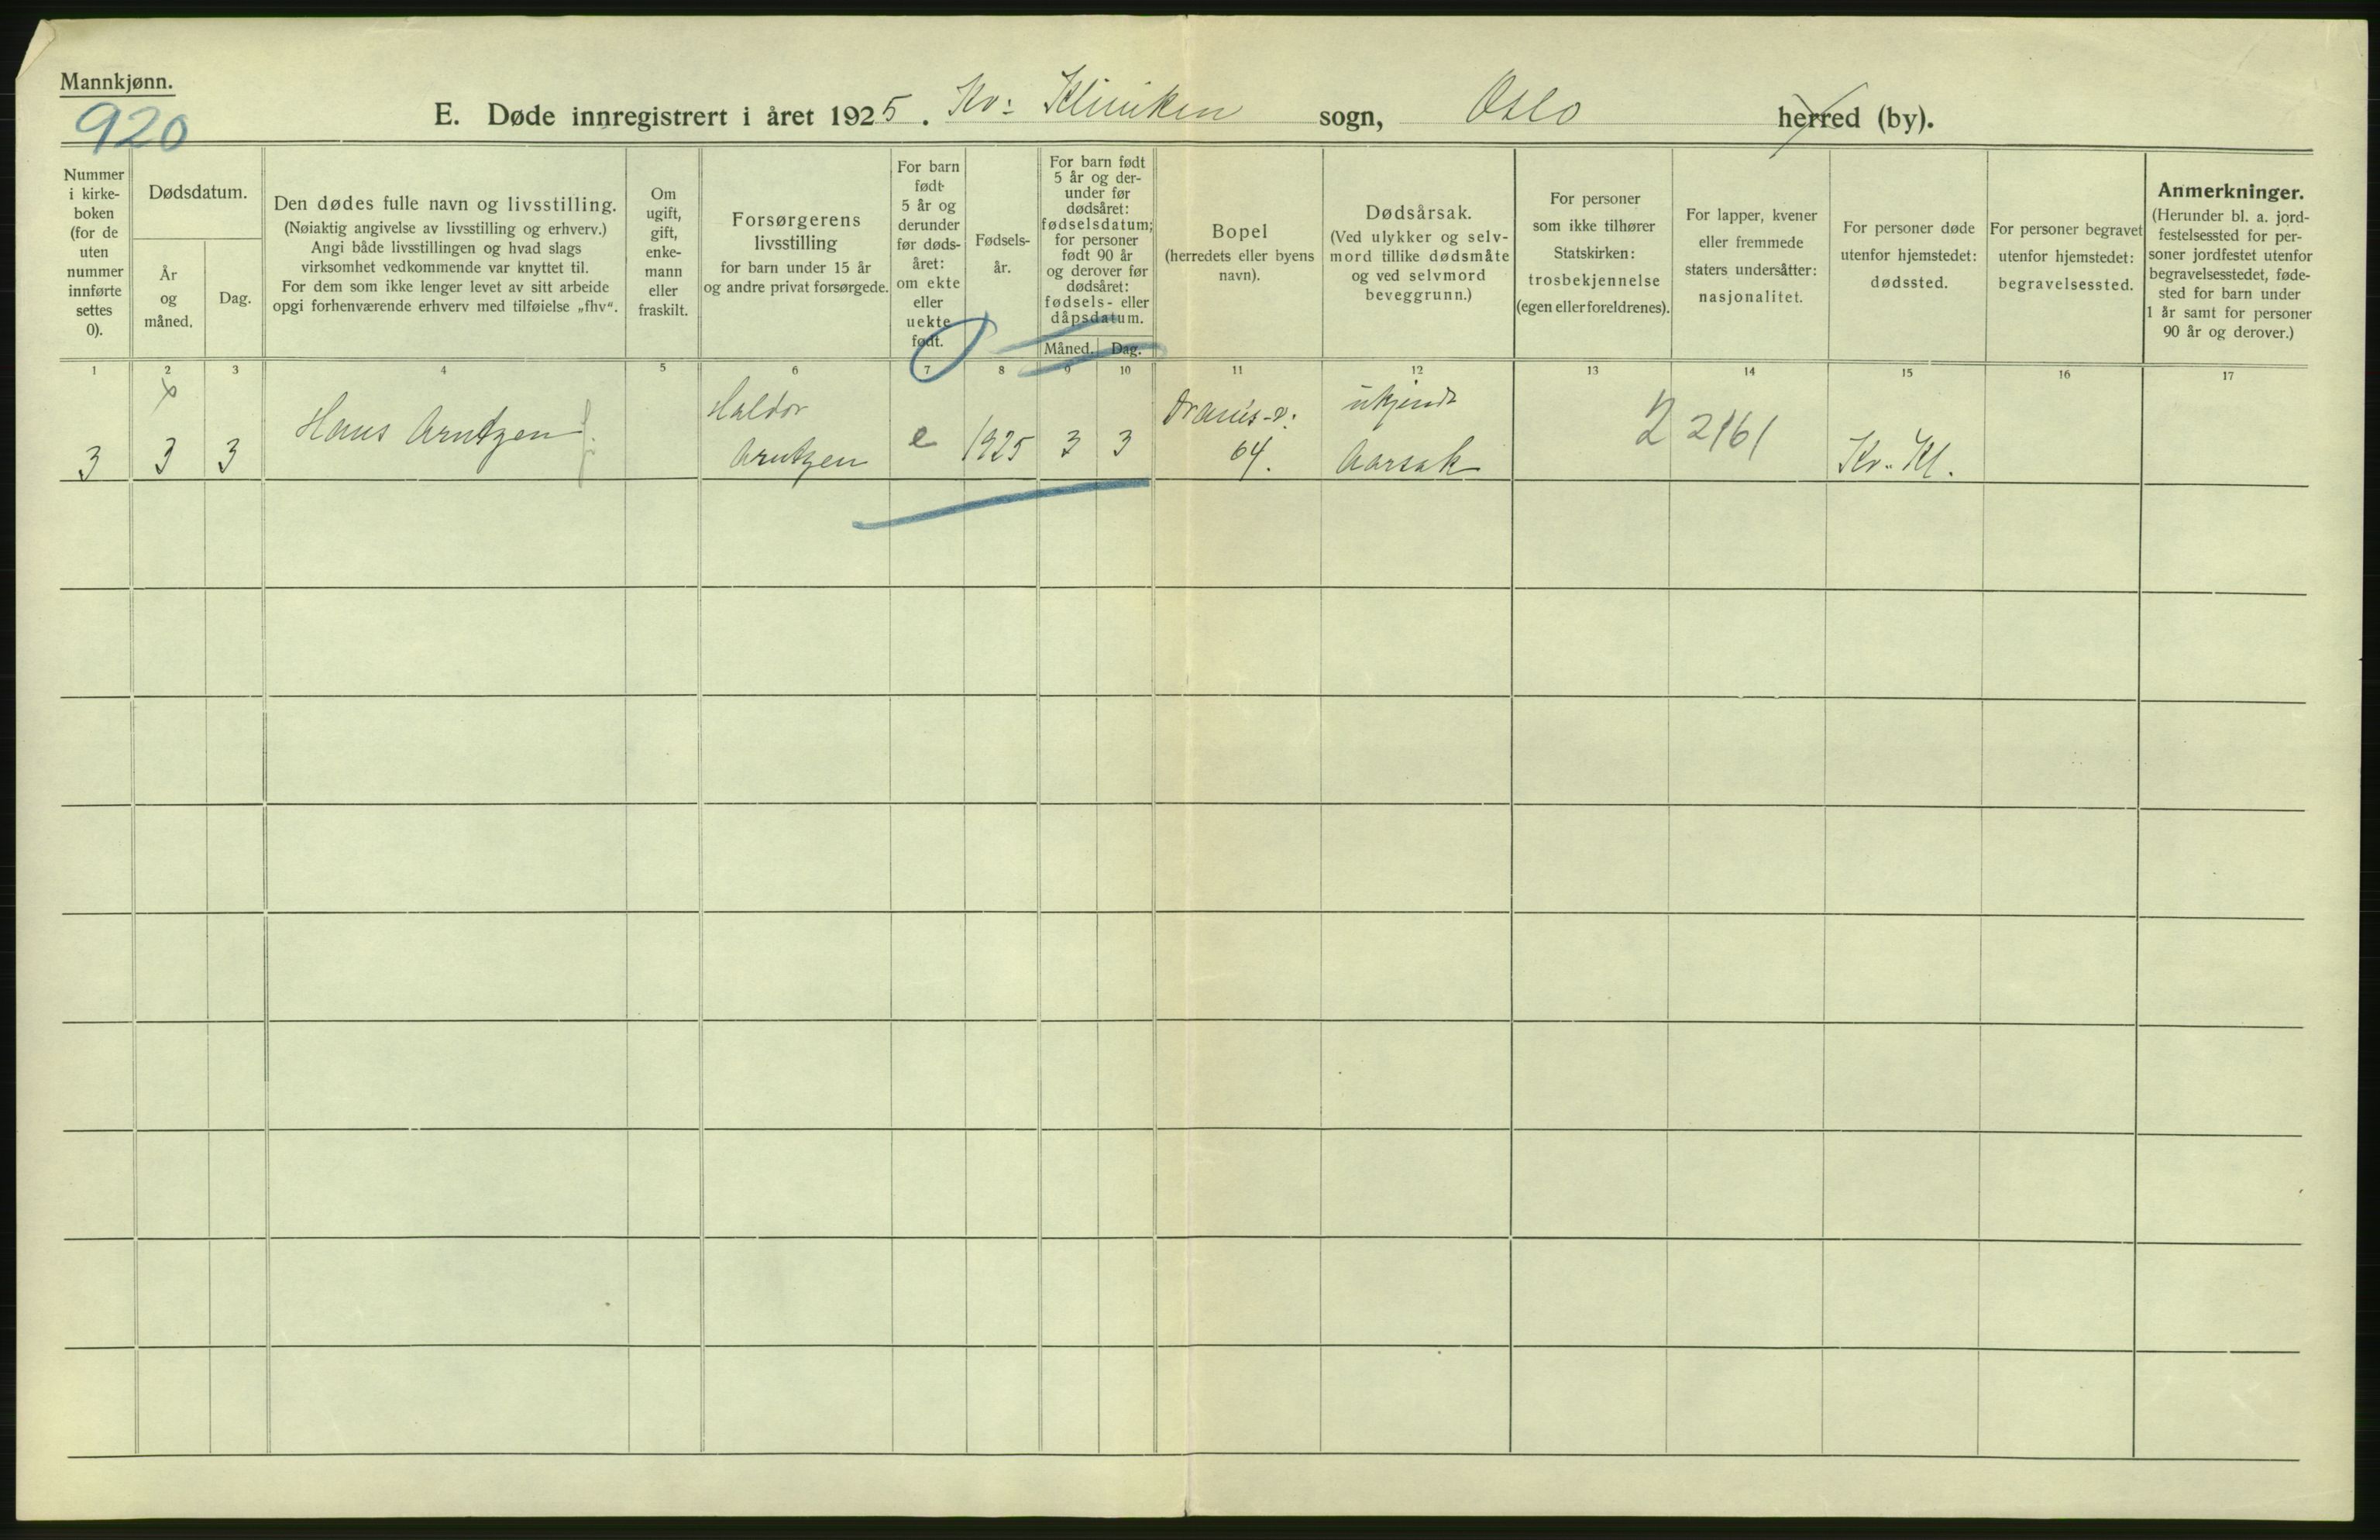 Mannkjønn.
920
E. Døde innregistrert i året 1925. Kv: Kliniken sogn, Oslo herred (by).
Nummer
i kirke-
boken
(for de
uten
nummer
innførte
settes
0).
Dødsdatum.
År
og
måned.
Dag.
Den dødes fulle navn og livsstilling.
(Nøiaktig angivelse av livsstilling og erhverv.)
Angi både livsstillingen og hvad slags
virksomhet vedkommende var knyttet til.
For dem som ikke lenger levet av sitt arbeide
opgi forhenværende erhverv med tilføielse „fhv“.
Om
ugift,
gift,
enke-
mann
eller
fraskilt.
Forsørgerens
livsstilling
for barn under 15 år
og andre privat forsørgede.
For barn
født
5 år og
derunder
før døds-
året:
om ekte
eller
uekte
født.
Fødsels-
år.
For barn født
5 år og der-
under før
dødsåret:
fødselsdatum;
for personer
født 90 år
og derover før
dødsåret:
fødsels- eller
dåpsdatum.
Måned. Dag.
Bopel
(herredets eller byens
navn).
Dødsårsak.
(Ved ulykker og selv-
mord tillike dødsmåte
og ved selvmord
beveggrunn.)
For personer
som ikke tilhører
Statskirken:
trosbekjennelse
(egen eller foreldrenes).
For lapper, kvener
eller fremmede
staters undersåtter:
nasjonalitet.
For personer døde
utenfor hjemstedet:
dødssted.
For personer begravet
utenfor hjemstedet:
begravelsessted.
Anmerkninger.
(Herunder bl. a. jord-
festelsessted for per-
soner jordfestet utenfor
begravelsesstedet, føde-
sted for barn under
1 år samt for personer
90 år og derover.)
1 2 3 4 5 6 7 8 9 10 11 12 13 14 15 16 17
x
3 3 3 Hans Arntzen
Haldor
Arntzen
e 1925 3 3
64.
ukjendt
Aarsak
2 2161
Kv. Kl.